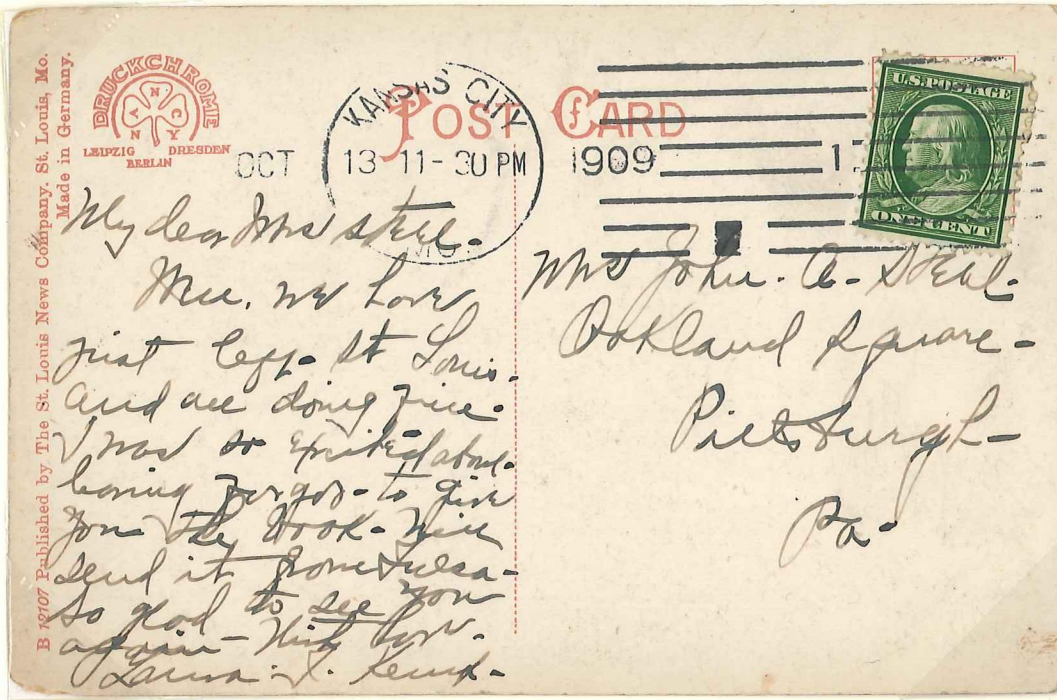 B 12107 Published by The St. Louis News Company. St. Louis, Mo.
Made in Germany.
DRUCKCHROME
ANCNY
LEIPZIG DRESDEN
BERLIN
POST CARD
KANSAS CITY
OCT 13 11-30 PM 1909 1
MO
U.S. POSTAGE
ONE CENT
My dear Mrs Steel-
Well, we have
just left- St Louis-
and are doing fine-
I was so excited about-
leaving forgot- to give
you the book- Will
send it from Tulsa-
So glad to see you
again- With love-
Laura J. Kemp-
Mrs John. A- Steel-
Oakland Square-
Pittsburgh-
Pa-